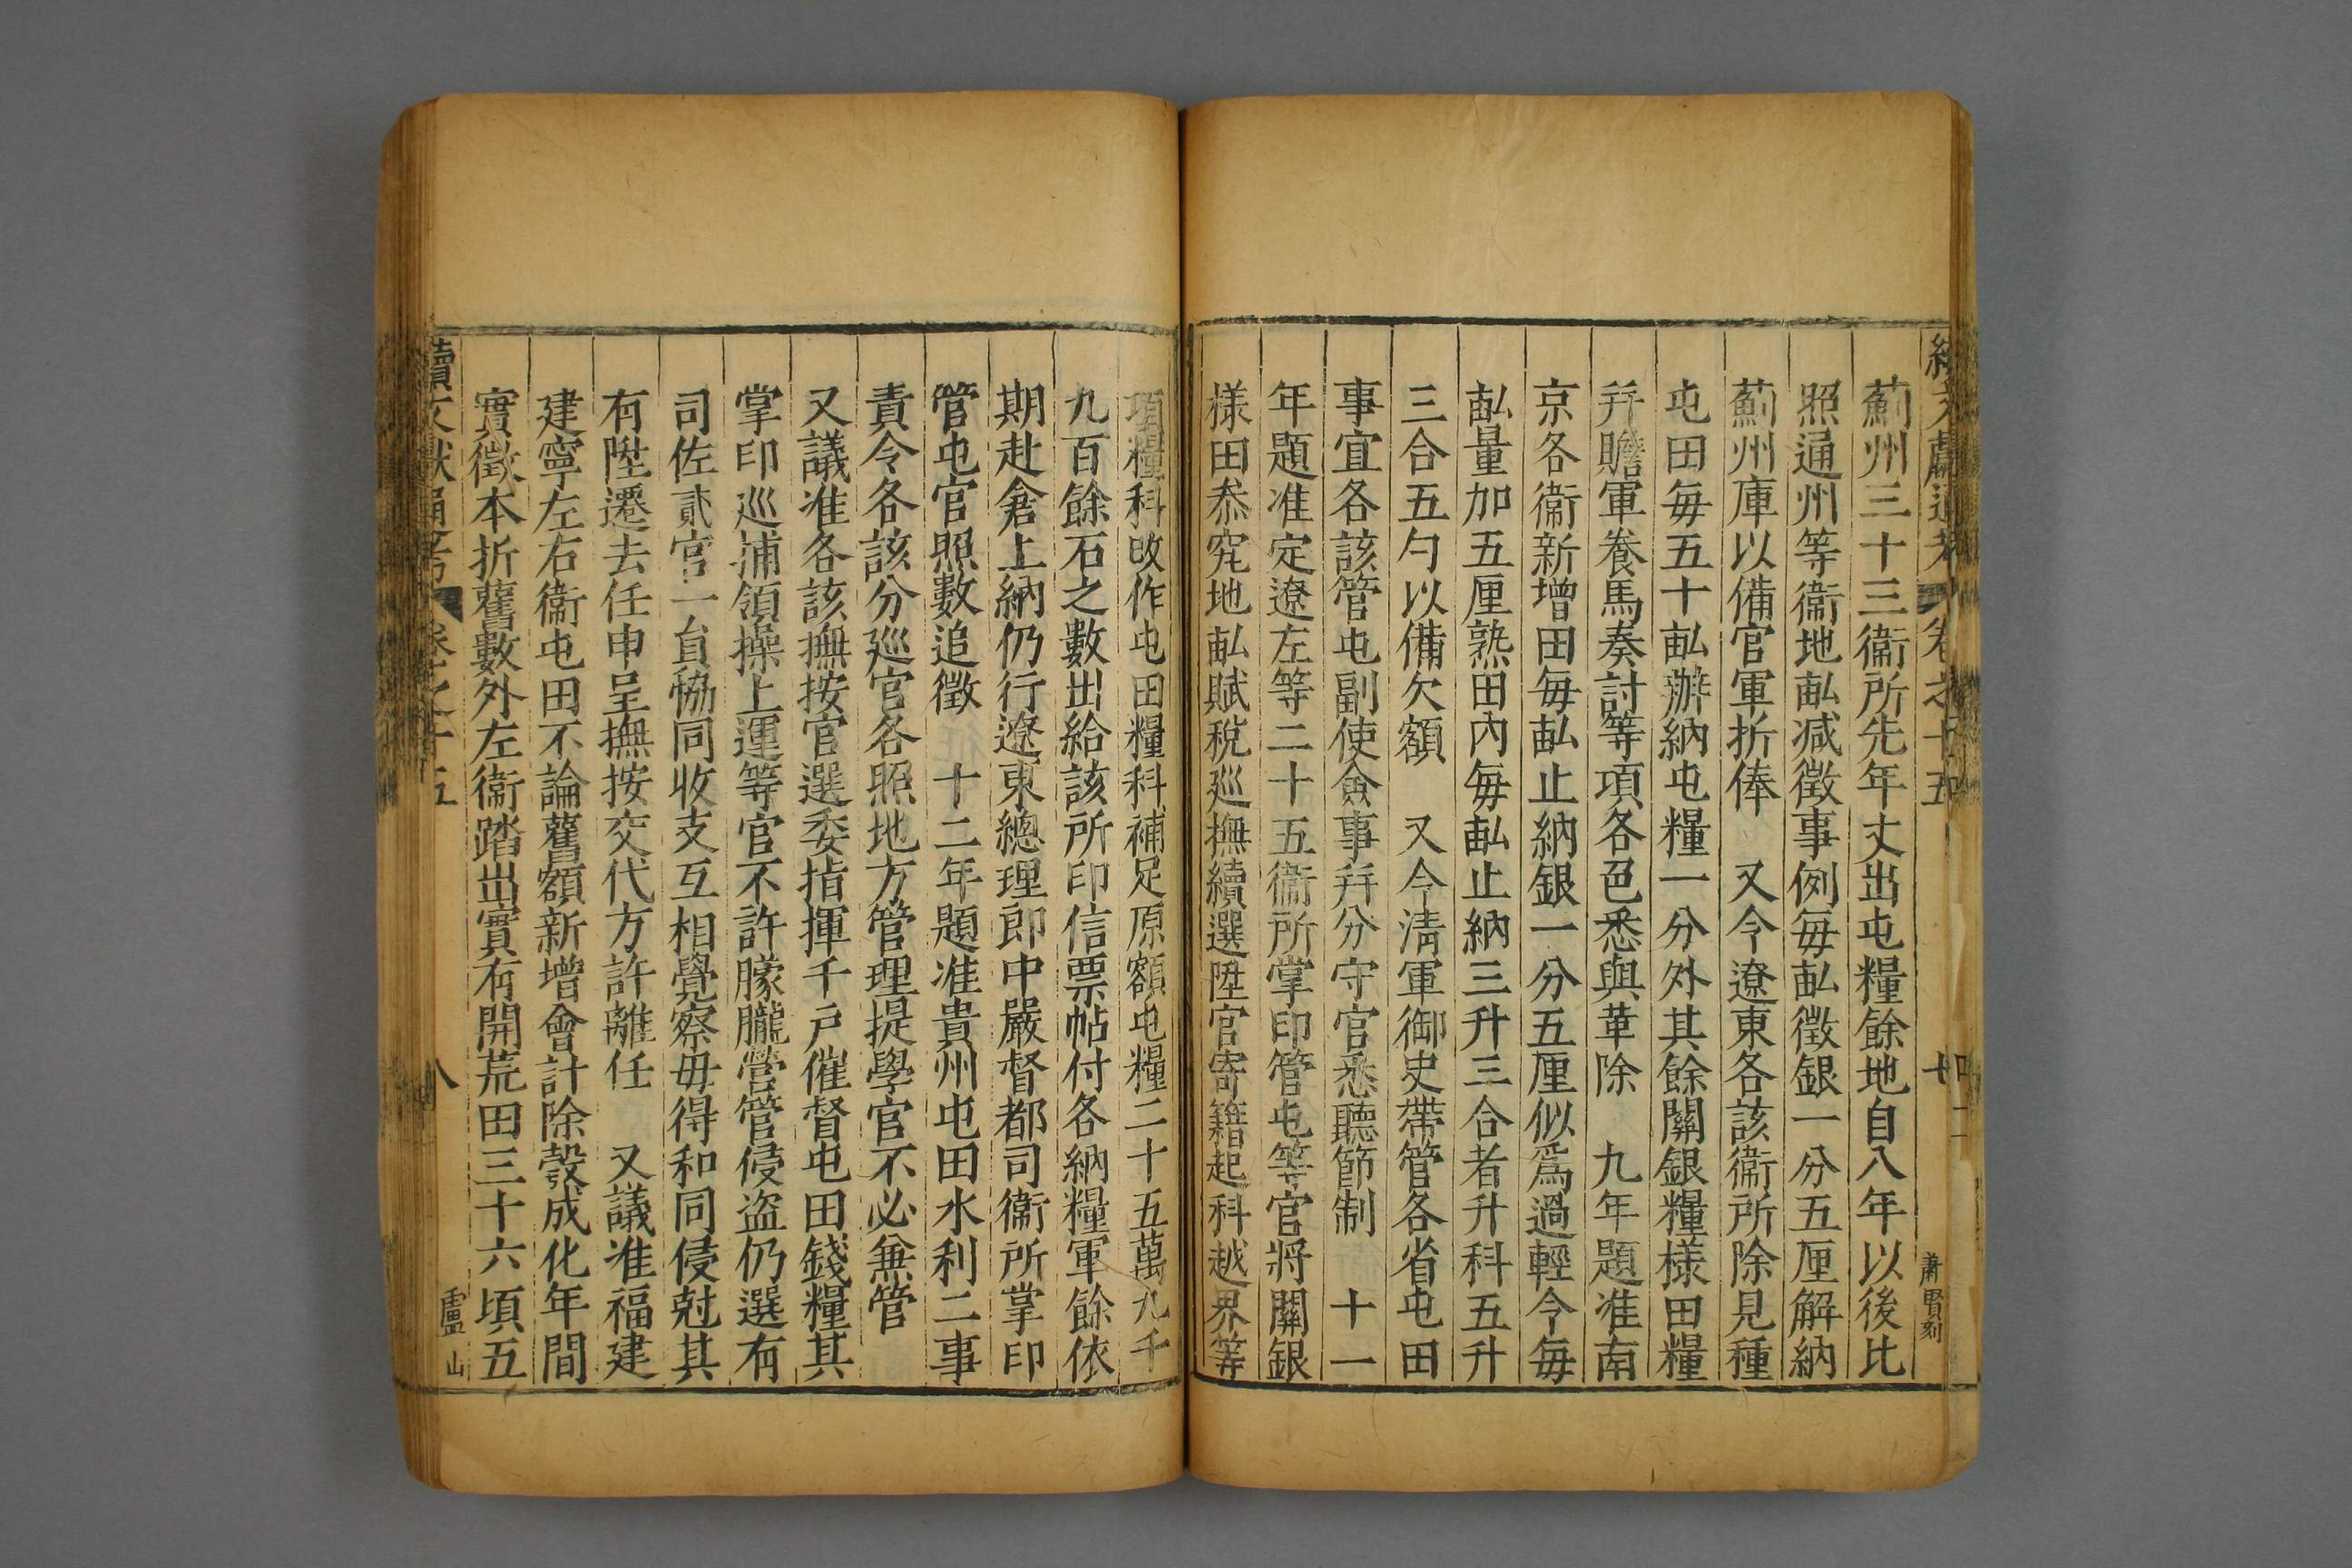 續文獻通考 卷之十五 七 蕭賢刻
薊州三十三衞所先年丈出屯糧餘地自八年以後比
照通州等衞地畒减徵事例每畒徵銀一分五厘解納
薊州庫以備官軍折俸 又令遼東各該衞所除見種
屯田每五十畒辦納屯糧一分外其餘關銀糧樣田糧
幷贍軍養馬奏討等項各邑悉與革除 九年題准南
京各衞新增田每畒止納銀一分五厘似爲過輕今每
畒量加五厘熟田內每畒止納三升三合者升科五升
三合五勺以備欠額 又令清軍御史帶管各省屯田
事宜各該管屯副使僉事幷分守官悉聽節制 十一
年題准定遼左等二十五衞所掌印管屯等官將關銀
樣田叅究地畒賦稅巡撫續選陞官寄籍起科越界等
項糧科改作屯田糧科補足原額屯糧二十五萬九千
九百餘石之數出給該所印信票帖付各納糧軍餘依
期赴倉上納仍行遼東總理郎中嚴督都司衞所掌印
管屯官照數追徵 十二年題准貴州屯田水利二事
責令各該分巡官各照地方管理提學官不必兼管
又議准各該撫按官選委指揮千戶催督屯田錢糧其
掌印巡捕領操上運等官不許朦朧營管侵盜仍選有
司佐貳官一員恊同收支互相覺察毋得和同侵尅其
有陞遷去任申呈撫按交代方許離任 又議准福建
建寧左右衞屯田不論舊額新增會計除豁成化年間
實徵本折舊數外左衞踏出實有開荒田三十六頃五
續文獻通考 卷之十五 八 盧山